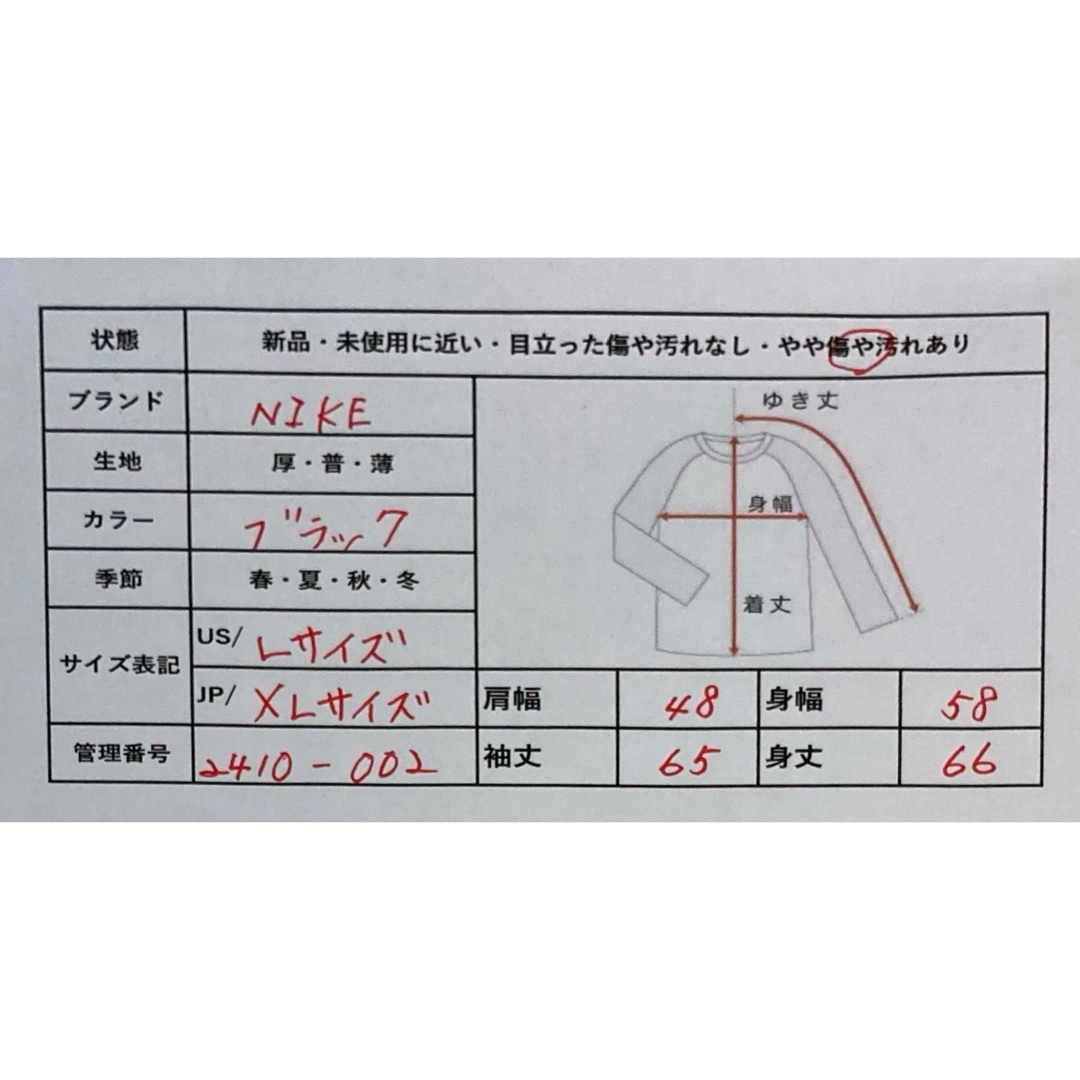 状態 新品・未使用に近い・目立った傷や汚れなし・やや傷や汚れあり
ブランド NIKE
生地 厚・普・薄
カラー ブラック
季節 春・夏・秋・冬
サイズ表記 US/ Lサイズ
JP/ XLサイズ
管理番号 2410-002
ゆき丈
身幅
着丈
肩幅 48 身幅 58
袖丈 65 身丈 66